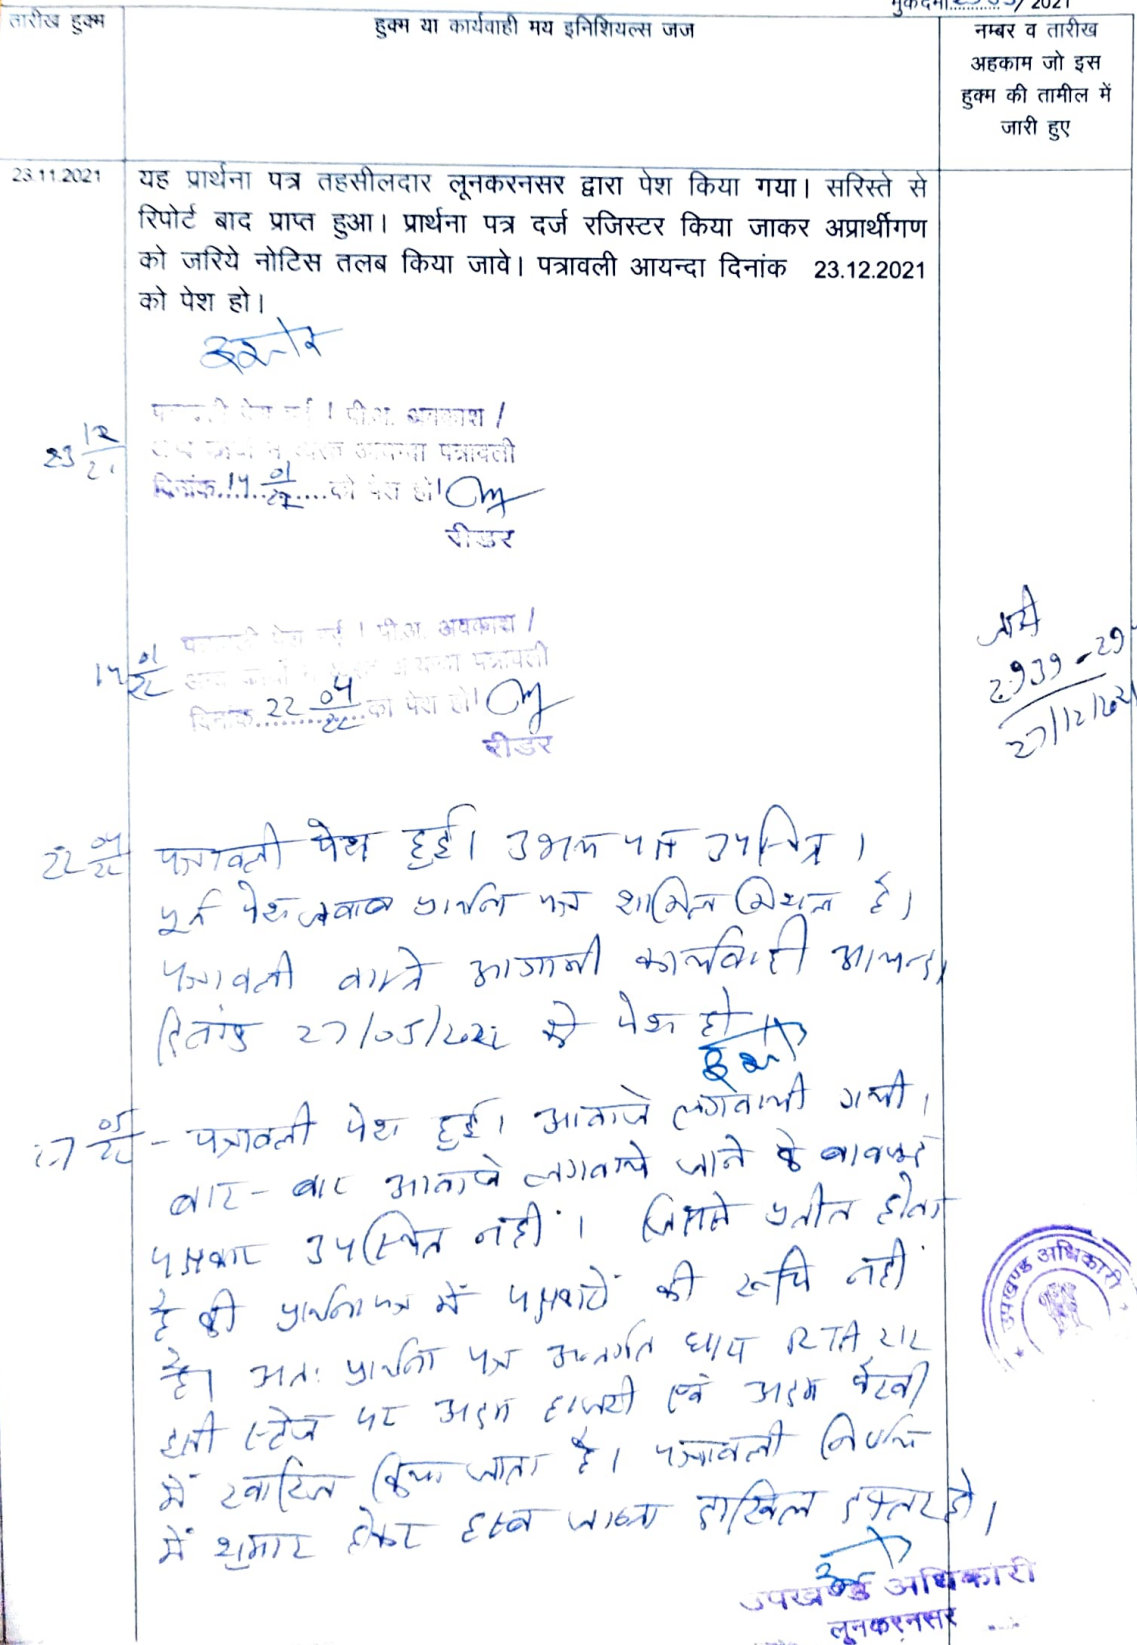 मुकदमा.........../ 2021
तारीख हुक्म
हुक्म या कार्यवाही मय इनिशियल्स जज
नम्बर व तारीख
अहकाम जो इस
हुक्म की तामील में
जारी हुए
23.11.2021
यह प्रार्थना पत्र तहसीलदार लूनकरनसर द्वारा पेश किया गया। सरिस्ते से
रिपोर्ट बाद प्राप्त हुआ। प्रार्थना पत्र दर्ज रजिस्टर किया जाकर अप्रार्थीगण
को जरिये नोटिस तलब किया जावे। पत्रावली आयन्दा दिनांक 23.12.2021
को पेश हो।
23 12/21
पत्रावली पेश हुई। पी.अ. अवकाश /
व्यस्त आयन्दा पत्रावली
दिनांक 14 01/22 को पेश हो।
रीडर
14 01/22
पत्रावली पेश हुई। पी.अ. अवकाश /
अन्य कार्यों में व्यस्त आयन्दा पत्रावली
दिनांक 22 04/22 को पेश हो।
रीडर
जारी
2939-29
27/12/2021
22 04/22
पत्रावली पेश हुई। उभय पक्ष उपस्थित।
पूर्व पेश जवाब प्रार्थना पत्र शामिल मिशल है।
पत्रावली वास्ते आगामी कार्यवाही आयन्दा
दिनांक 27/05/2022 को पेश हो
27 05/22 - पत्रावली पेश हुई। आवाजे लगवायी गयी।
बार-बार आवाजे लगवाये जाने के बावजूद
पक्षकार उपस्थित नहीं। जिससे प्रतीत होता
है की प्रार्थना पत्र में पक्षकारों की रूचि नहीं
है। अतः प्रार्थना पत्र अन्तर्गत धारा RTA
इसी स्टेज पर अदम हाजरी एवं अदम पैरवी
में खारिज किया जाता है। पत्रावली निर्णित
में शुमार होकर बाद जाब्ता दाखिल दफ्तर हो।
उपखण्ड अधिकारी
उपखण्ड अधिकारी
लूनकरनसर